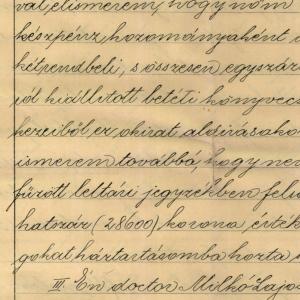 val elismerem, hogy nőm
készpénz hozományaként
kétrendbeli, s összesen egyszáz
ról kiállított betéti könyvec
kezeiből ez okirat aláírásako
ismerem továbbá, hogy ne
fűzött leltári jegyzékben fels
hatszáz (28600) korona érték
gokat háztartásomba hozta
III. Én doctor Milkó Lajos